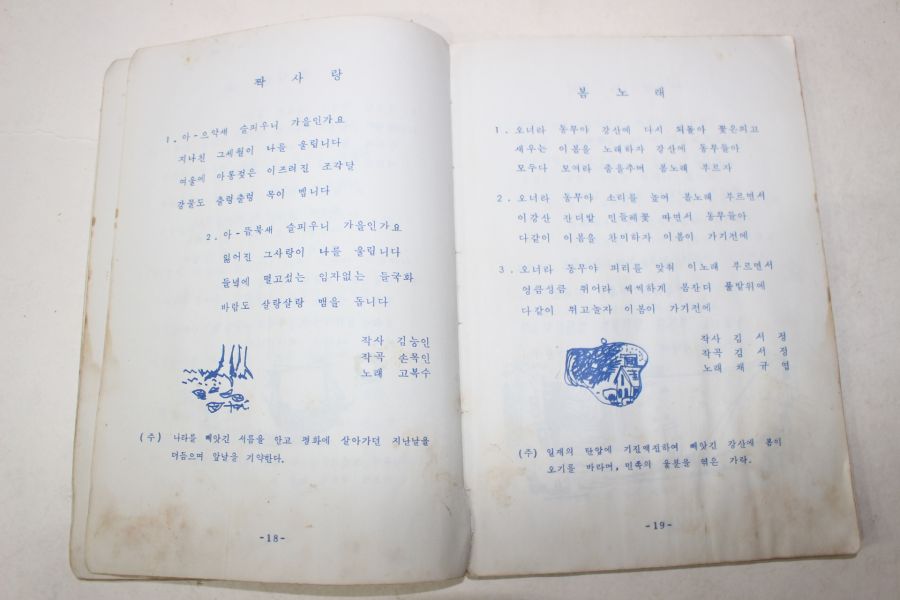 짝사랑
1. 아-으악새 슬피우니 가을인가요
지나친 그세월이 나를 울립니다
여울에 아롱젖은 이즈러진 조각달
강물도 출렁출렁 목이 멥니다
2. 아-뜸북새 슬피우니 가을인가요
잃어진 그사랑이 나를 울립니다
들녘에 떨고섰는 임자없는 들국화
바람도 살랑살랑 맴을 돕니다
작사 김능인
작곡 손목인
노래 고복수
(주) 나라를 빼앗긴 서름을 안고 평화에 살아가던 지난날을
더듬으며 앞날을 기약한다.
-18-
봄노래
1. 오너라 동무야 강산에 다시 되돌아 꽃은피고
새우는 이봄을 노래하자 강산에 동무들아
모두다 모여라 춤을추며 봄노래 부르자
2. 오너라 동무야 소리를 높여 봄노래 부르면서
이강산 잔디밭 민들레꽃 따면서 동무들아
다같이 이봄을 찬미하자 이봄이 가기전에
3. 오너라 동무야 피리를 맞춰 이노래 부르면서
엉큼성큼 뛰어라 씩씩하게 봄잔디 풀밭위에
다같이 뛰고놀자 이봄이 가기전에
작사 김서정
작곡 김서정
노래 채규엽
(주) 일제의 탄압에 기진맥진하여 빼앗긴 강산에 봄이
오기를 바라며, 민족의 울분을 엮은 가락.
-19-